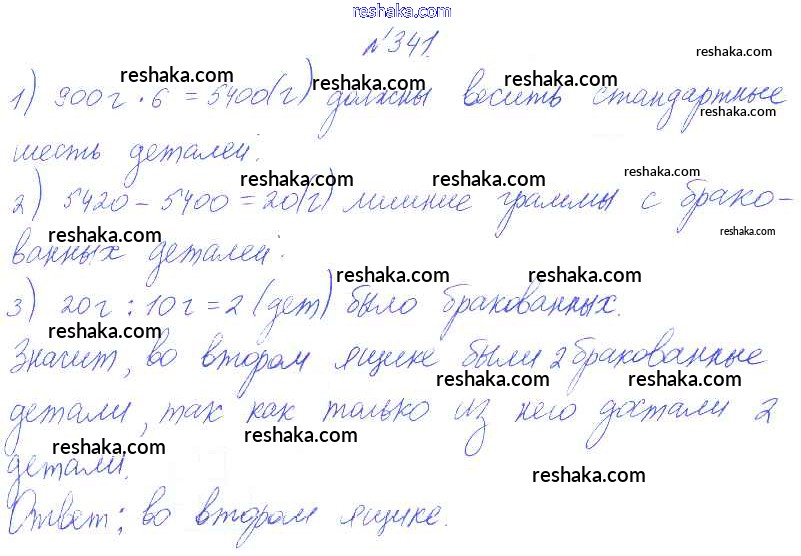 reshaka.com
№341. reshaka.com
reshaka.com reshaka.com reshaka.com
1) 900г · 6 = 5400(г) должны весить стандартные
reshaka.com
шесть деталей.
reshaka.com reshaka.com reshaka.com
2) 5420 - 5400 = 20(г) лишние граммы с брако-
reshaka.com reshaka.com
ванных деталей.
reshaka.com reshaka.com
3) 20г : 10г = 2 (дет) было бракованных.
reshaka.com
Значит, во втором ящике были 2 бракованные
reshaka.com reshaka.com
детали, так как только из него достали 2
reshaka.com reshaka.com
детали.
reshaka.com
Ответ: во втором ящике.